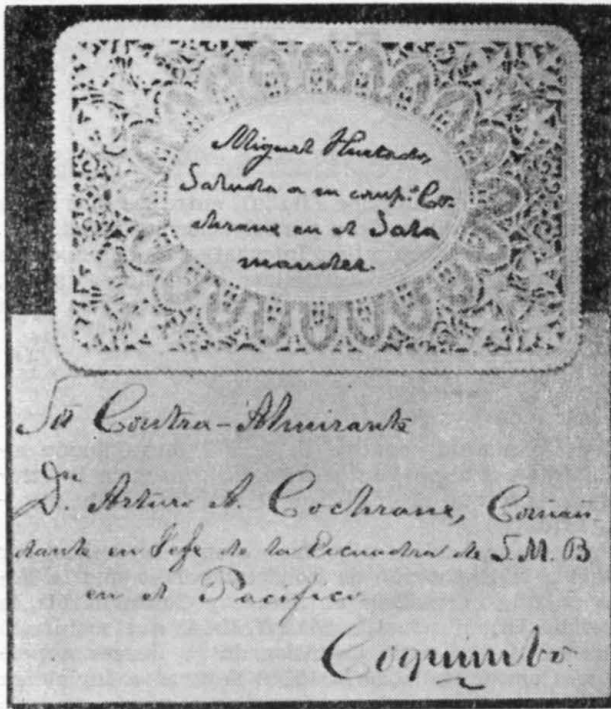 Miguel Hurtado,
Saluda a su comp.º Co-
chrane en el Sala
mander.
Sōr Contra-Almirante
Dn. Arturo A. Cochrane, Coman
dante en Jefe de la Escuadra de S.M.B
en el Pacifico
Coquimbo